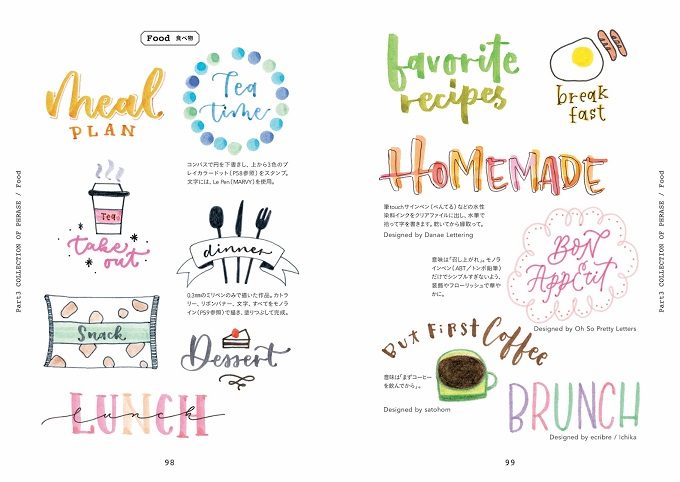 Food 食べ物
meal
PLAN
Tea
time
コンパスで円を下書きし、上から3色のプ
レイカラードット[P58参照]をスタンプ。
文字には、Le Pen[MARVY]を使用。
Tea
take
out
dinner
0.3mmのミリペンのみで描いた作品。カトラ
リー、リボンバナー、文字、すべてをモノラ
イン(P59参照)で描き、塗りつぶして完成。
Snack
Dessert
LUNCH
lunch
Part3 COLLECTION OF PHRASE / Food
98
favorite
recipes
break
fast
HOMEMADE
筆touchサインペン(ぺんてる)などの水性
染料インクをクリアファイルに出し、水筆で
拾って字を書きます。乾いてから縁取って。
Designed by Danae Lettering
BON
APPÉtit
意味は「召し上がれ」。モノラ
インペン[ABT/トンボ鉛筆]
だけでシンプルすぎないよう、
装飾やフローリッシュで華や
かに。
Designed by Oh So Pretty Letters
But First Coffee
意味は「まずコーヒー
を飲んでから」。
Designed by satohom
BRUNCH
Designed by ecribre / ichika
99
Part3 COLLECTION OF PHRASE / Food